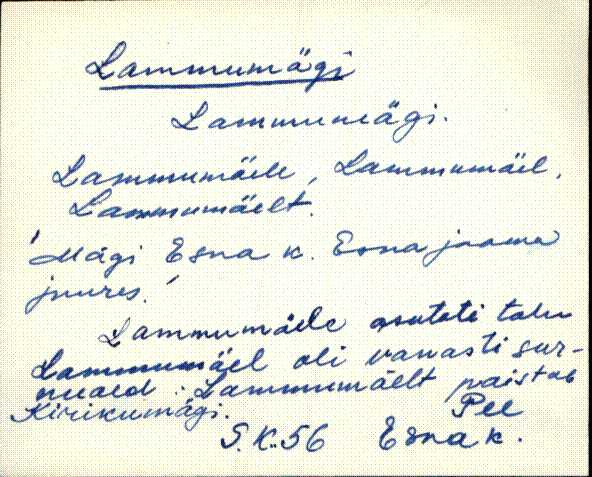 Lammumägi
Lammumägi.
Lammumäele, Lammumäel,
Lammumäelt.
'Mägi Esna k. Esna jaama
juures.'
Lammumäele asutati talu
Lammumäel oli vanasti sur-
nuaed. Lammumäelt paistab
Kirikumägi.
Pee
S.K. 56 Esna k.